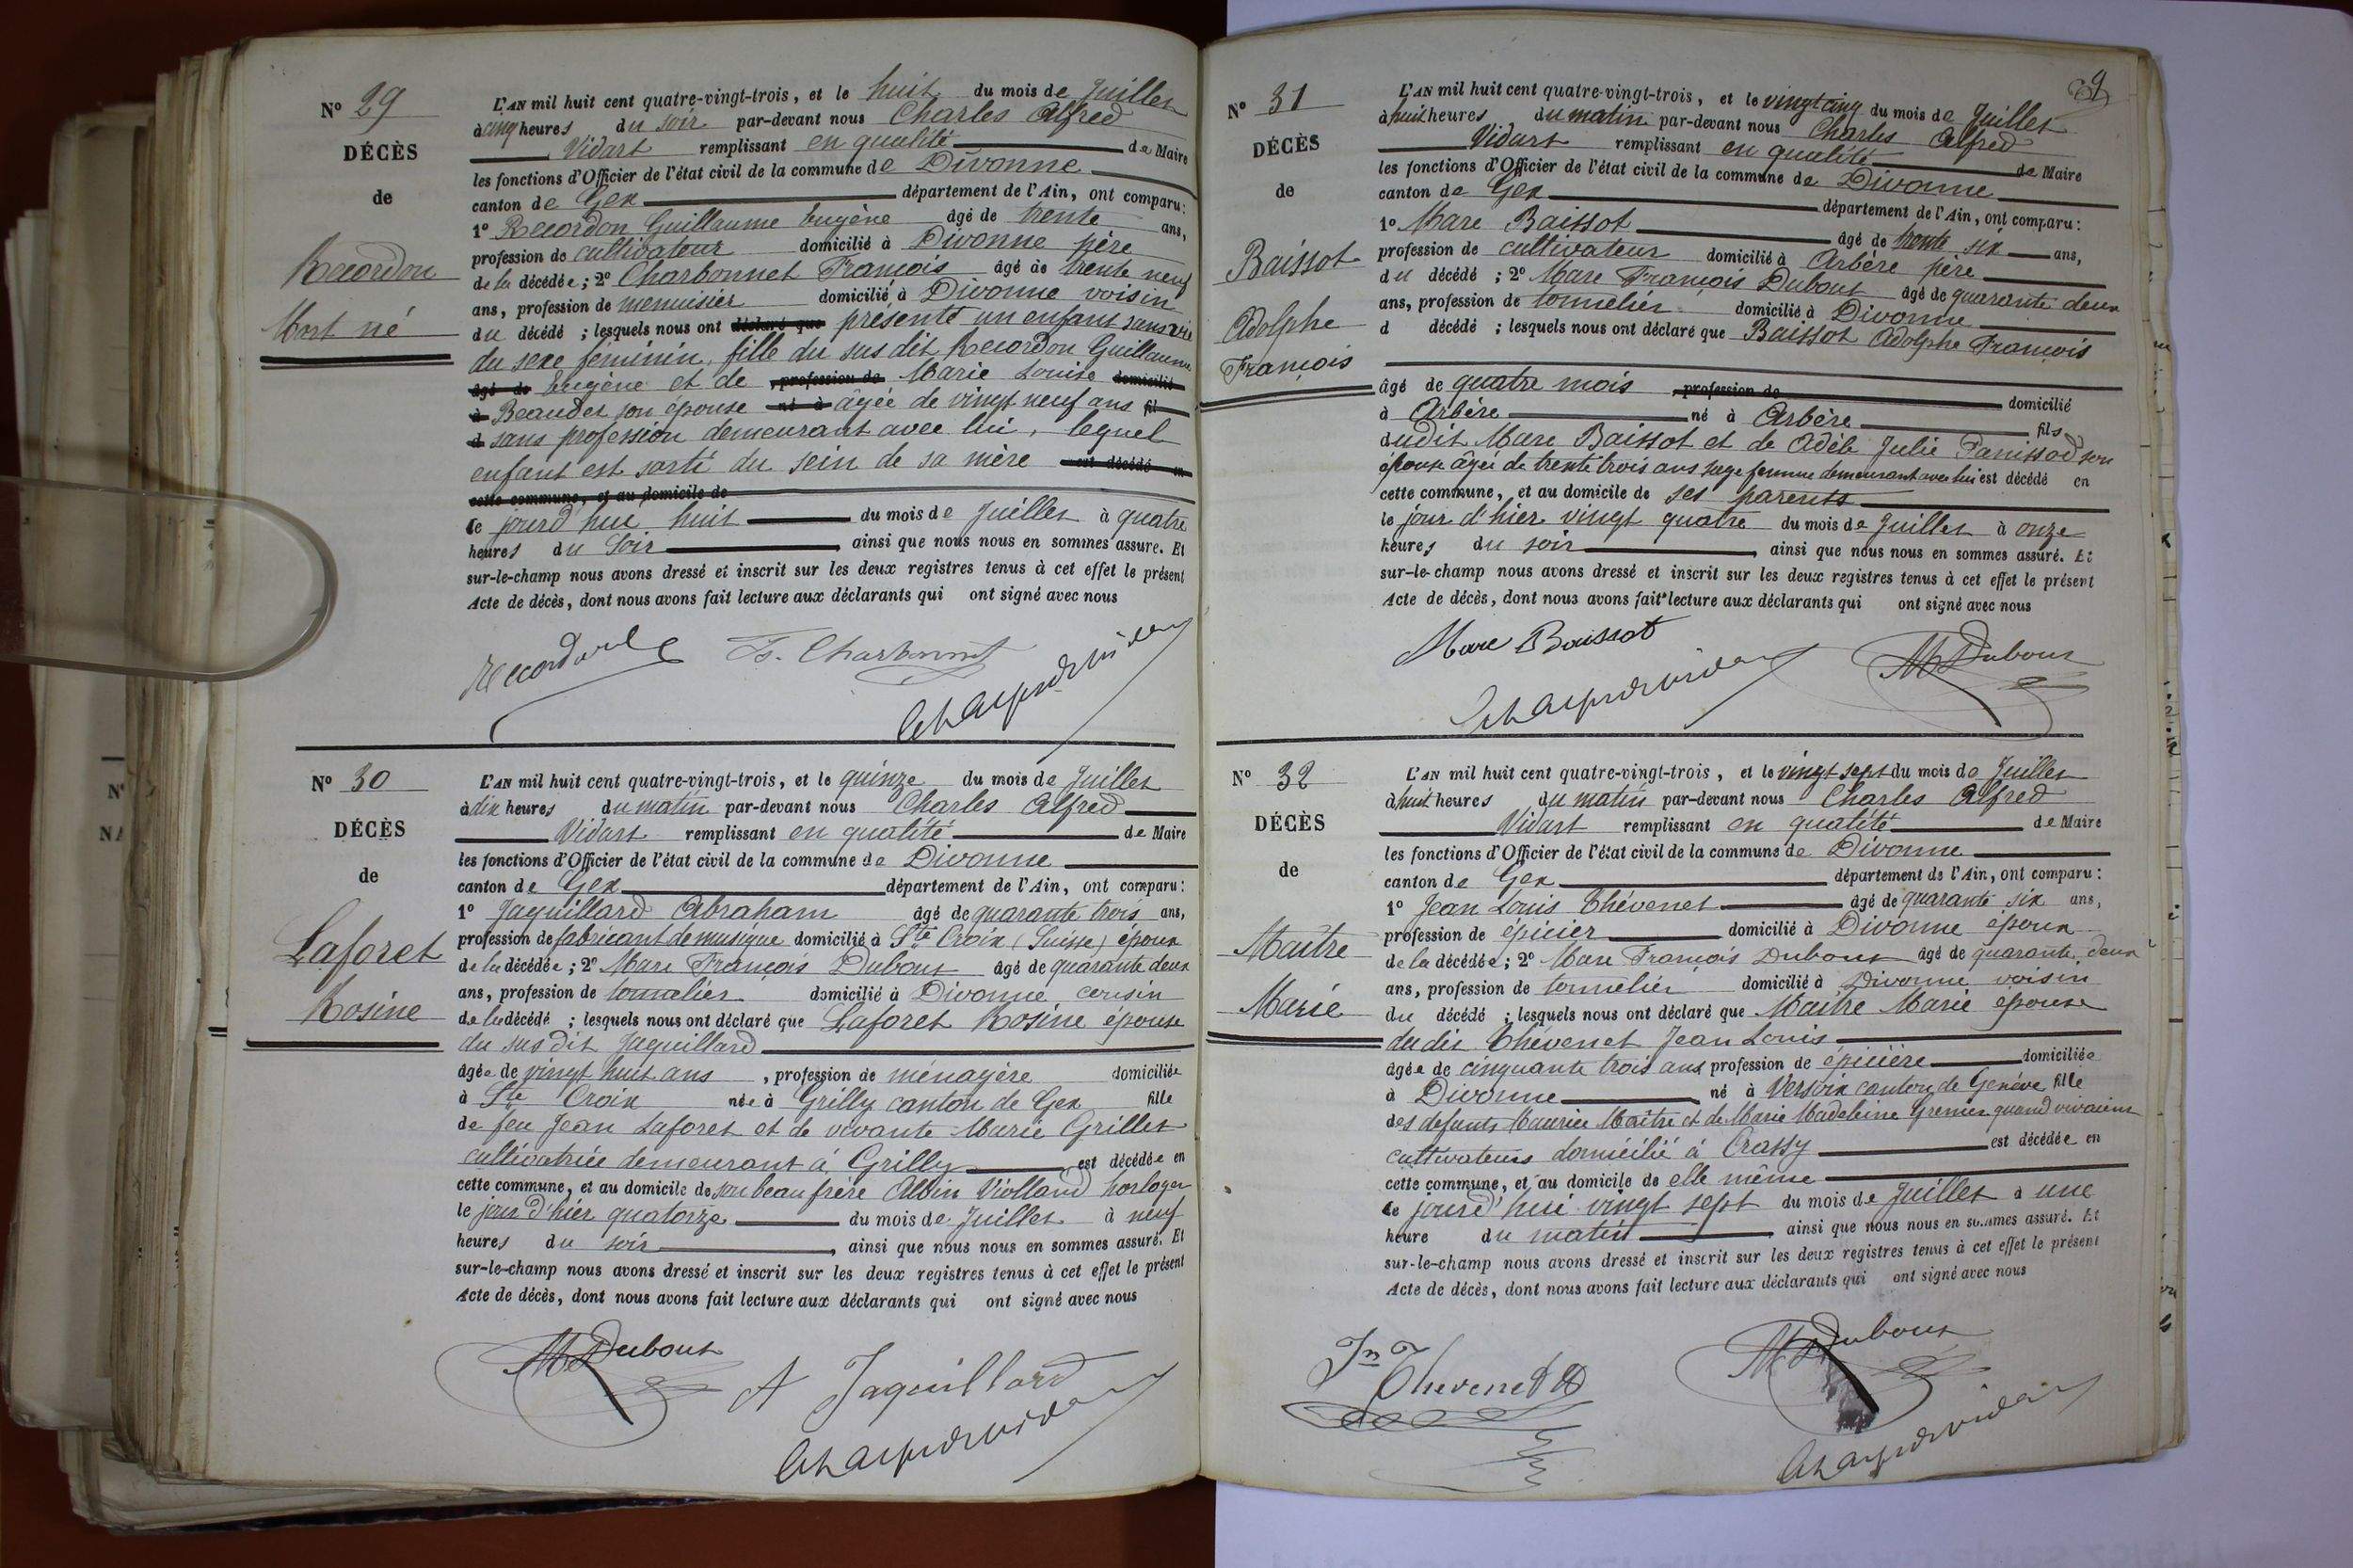 N° 29
DÉCÈS
de
Recordon
Mort né
L'AN mil huit cent quatre-vingt-trois, et le huit du mois de Juillet
à cinq heures du soir par-devant nous Charles Alfred
Vidart remplissant en qualité de Maire
les fonctions d'Officier de l'état civil de la commune de Divonne
canton de Gex département de l'Ain, ont comparu:
1° Recordon Guillaume Eugène âgé de trente ans,
profession de cultivateur domicilié à Divonne père
de la décédée; 2° Charbonnet François âgé de trente neuf
ans, profession de menuisier domicilié à Divonne voisin
du décédé ; lesquels nous ont déclaré que présenté un enfant sans vie
du sexe féminin, fille du sus dit Recordon Guillaume
âgé de Eugène et de profession de Marie Louise domicilié
à Beaudet son épouse né à agée de vingt neuf ans fil
d sans profession demeurant avec lui, lequel
enfant est sorti du sein de sa mère est décédé en
cette commune, et au domicile de
le jourd'hui huit du mois de Juillet à quatre
heures du soir ainsi que nous nous en sommes assuré. Et
sur-le-champ nous avons dressé et inscrit sur les deux registres tenus à cet effet le présent
Acte de décès, dont nous avons fait lecture aux déclarants qui ont signé avec nous
Recordon
F. Charbonnet
N° 30
DÉCÈS
de
Laforet
Rosine
L'AN mil huit cent quatre-vingt-trois, et le quinze du mois de Juillet
à dix heures du matin par-devant nous Charles Alfred
Vidart remplissant en qualité de Maire
les fonctions d'Officier de l'état civil de la commune de Divonne
canton de Gex département de l'Ain, ont comparu:
1° Jaquillard Abraham âgé de quarante trois ans,
profession de fabricant de musique domicilié à Ste Croix (Suisse) époux
de la décédée; 2° Marc François Dubout âgé de quarante deux
ans, profession de tonnelier domicilié à Divonne cousin
de la décédé ; lesquels nous ont déclaré que Laforet Rosine épouse
du sus dit Jaquillard
âgée de vingt huit ans , profession de ménagère domiciliée
à Ste Croix née à Grilly canton de Gex fille
de feu Jean Laforet et de vivante Marie Grillet
cultivatrice demeurant à Grilly est décédée en
cette commune, et au domicile de son beau frère Albin Violland horloger
le jour d'hier quatorze du mois de Juillet à neuf
heures du soir , ainsi que nous nous en sommes assuré. Et
sur-le-champ nous avons dressé et inscrit sur les deux registres tenus à cet effet le présent
Acte de décès, dont nous avons fait lecture aux déclarants qui ont signé avec nous
M Dubout
A Jaquillard
9
N° 31
DÉCÈS
de
Baissot
Adolphe
François
L'AN mil huit cent quatre-vingt-trois, et le vingt cinq du mois de Juillet
à huit heures du matin par-devant nous Charles Alfred
Vidart remplissant en qualité de Maire
les fonctions d'Officier de l'état civil de la commune de Divonne
canton de Gex département de l'Ain, ont comparu:
1° Marc Baissot âgé de trente six ans,
profession de cultivateur domicilié à Arbère père
du décédé ; 2° Marc François Dubout âgé de quarante deux
ans, profession de tonnelier domicilié à Divonne
d décédé ; lesquels nous ont déclaré que Baissot Adolphe François
âgé de quatre mois profession de domicilié
à Arbère né à Arbère fils
dudit Marc Baissot et de Adèle Julie Panissod son
épouse âgée de trente trois ans sage femme demeurant avec lui est décédé en
cette commune, et au domicile de ses parents
le jour d'hier vingt quatre du mois de Juillet à onze
heures du soir , ainsi que nous nous en sommes assuré. Et
sur-le-champ nous avons dressé et inscrit sur les deux registres tenus à cet effet le présent
Acte de décès, dont nous avons fait lecture aux déclarants qui ont signé avec nous
Marc Baissot
M Dubout
N° 32
DÉCÈS
de
Maître
Marie
L'AN mil huit cent quatre-vingt-trois, et le vingt sept du mois de Juillet
à huit heures du matin par-devant nous Charles Alfred
Vidart remplissant en qualité de Maire
les fonctions d'Officier de l'état civil de la commune de Divonne
canton de Gex département de l'Ain, ont comparu:
1° Jean Louis Thévenet âgé de quarante six ans,
profession de épicier domicilié à Divonne époux
de la décédée; 2° Marc François Dubout âgé de quarante deux
ans, profession de tonnelier domicilié à Divonne voisin
du décédé ; lesquels nous ont déclaré que Maître Marie épouse
du dit Thévenet Jean Louis
âgée de cinquante trois ans profession de épicière domiciliée
à Divonne né à Versoix canton de Genève fille
des defunts Maurice Maître et de Marie Madeleine Grenier quand vivaient
cultivateurs domicilié à Crassy est décédée en
cette commune, et au domicile de elle même
le jourd'hui vingt sept du mois de Juillet à une
heure du matin ainsi que nous nous en sommes assuré. Et
sur-le-champ nous avons dressé et inscrit sur les deux registres tenus à cet effet le présent
Acte de décès, dont nous avons fait lecture aux déclarants qui ont signé avec nous
Jn Thevenet
M Dubout